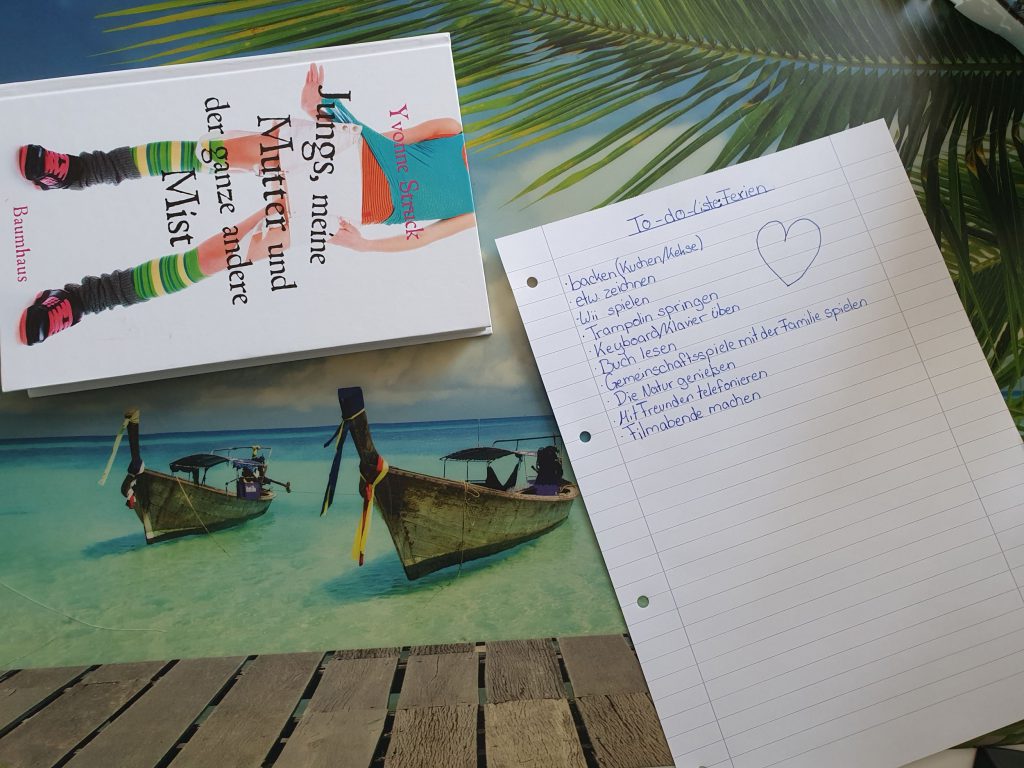 Yvonne Struck
Jungs, meine
Mutter und
der ganze andere
Mist
Baumhaus
To-do-Liste:Ferien
· backen (Kuchen/Kekse)
· etw. zeichnen
· Wii spielen
· Trampolin springen
· Keyboard/Klavier üben
· Buch lesen
· Gemeinschaftsspiele mit der Familie spielen
· Die Natur genießen
· Mit Freunden telefonieren
· Filmabende machen